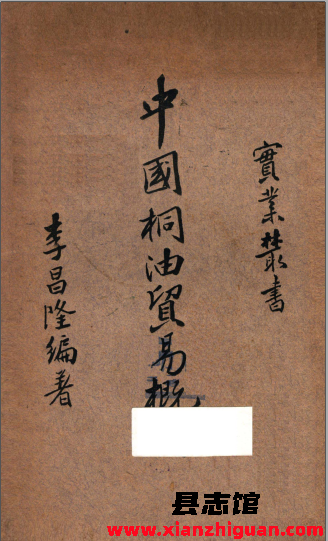 實業叢書
中國桐油貿易概
李昌隆編著
县志馆
www.xianzhiguan.com